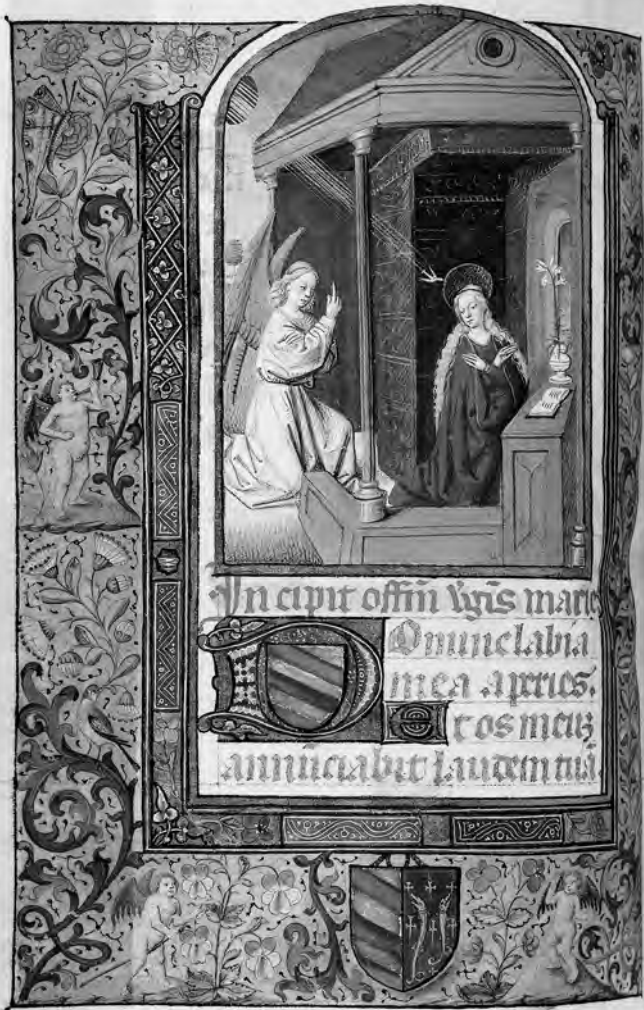 Incipit offm̄ v̄gis marie
Domine labia
mea aperies.
Et os meuz
annūciabit laudem tuā.